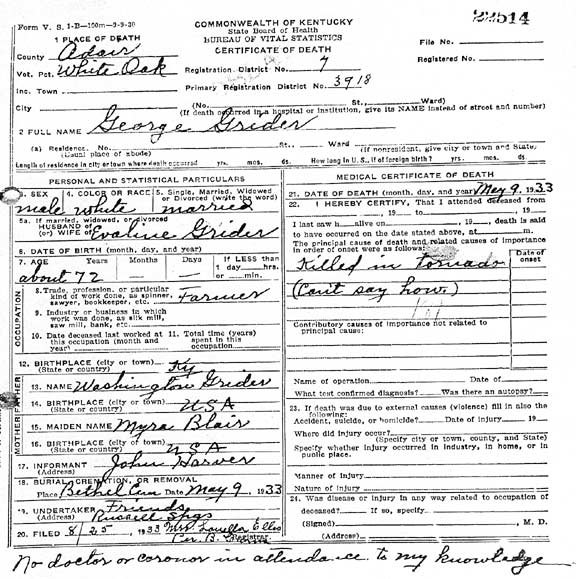 22514
Form V. S. 1-D—100m—9-9-30
COMMONWEALTH OF KENTUCKY
State Board of Health
BUREAU OF VITAL STATISTICS
CERTIFICATE OF DEATH
1 PLACE OF DEATH
County Adair
Vot. Pct. White Oak
Inc. Town
City
File No.
Registered No.
Registration District No. 7
Primary Registration District No. 3918
(No. St., Ward)
(If death occurred in a hospital or institution, give its NAME instead of street and number)
2 FULL NAME George Grider
(a) Residence. No. St., Ward
(Usual place of abode) (If nonresident, give city or town and State)
Length of residence in city or town where death occurred yrs. mos. ds. How long in U. S., if of foreign birth? yrs. mos. ds.
PERSONAL AND STATISTICAL PARTICULARS
3. SEX 4. COLOR OR RACE 5. Single, Married, Widowed or Divorced (write the word)
male white married
5a. If married, widowed, or divorced
HUSBAND of
(or) WIFE of Evaline Grider
6. DATE OF BIRTH (month, day, and year)
7. AGE Years Months Days If LESS than
1 day hrs.
or min.
about 72
OCCUPATION
8. Trade, profession, or particular kind of work done, as spinner, sawyer, bookkeeper, etc. Farmer
9. Industry or business in which work was done, as silk mill, saw mill, bank, etc.
10. Date deceased last worked at this occupation (month and year)
11. Total time (years) spent in this occupation
12. BIRTHPLACE (city or town) Ky
(State or country)
FATHER
13. NAME Washington Grider
14. BIRTHPLACE (city or town) USA
(State or country)
MOTHER
15. MAIDEN NAME Myra Blair
16. BIRTHPLACE (city or town) USA
(State or country)
17. INFORMANT John
(Address)
18. BURIAL, CREMATION, OR REMOVAL
Place Bethel Cem Date May 9, 1933
19. UNDERTAKER Friends
(Address) Russell Spgs
20. FILED 8/25, 1933 Mrs Louella Ellis
Registrar
MEDICAL CERTIFICATE OF DEATH
21. DATE OF DEATH (month, day, and year) May 9, 1933
22. I HEREBY CERTIFY, That I attended deceased from
, 19 to , 19
I last saw h alive on , 19 , death is said
to have occurred on the date stated above, at m.
The principal cause of death and related causes of importance
in order of onset were as follows:
Date of onset
Killed in tornado
(Can't say how.)
Contributory causes of importance not related to
principal cause:
Name of operation Date of
What test confirmed diagnosis? Was there an autopsy?
23. If death was due to external causes (violence) fill in also the
following:
Accident, suicide, or homicide? Date of injury 19
Where did injury occur?
(Specify city or town, county, and State)
Specify whether injury occurred in industry, in home, or in
public place.
Manner of injury
Nature of injury
24. Was disease or injury in any way related to occupation of
deceased? If so, specify
(Signed) , M. D.
(Address)
No doctor or coronor in attendance to my knowledge